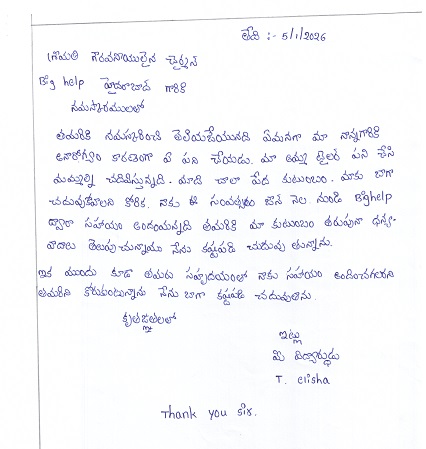 తేది :- 5/1/2026
శ్రీమతి గౌరవనీయులైన చైర్మన్
Big help హైదరాబాద్ గారికి
నమస్కారములతో
తమరికి నమస్కరించి తెలియజేయునది ఏమనగా మా నాన్నగారికి
అనారోగ్యం కారణంగా ఏ పని చేయడు. మా అమ్మ టైలర్ పని చేసి
మమ్మల్ని చదివిస్తున్నది. మాది చాలా పేద కుటుంబం. మాకు బాగా
చదువుకోవాలని కోరిక. నాకు ఈ సంవత్సరం జూన్ నెల నుండి Bighelp
ద్వారా సహాయం అందుతున్నది తమరికి మా కుటుంబం తరుపునా ధన్య-
వాదాలు తెలుపుచున్నాము నేను కష్టపడి చదువు తున్నాను.
ఇక ముందు కూడా తమరు సహృదయంతో నాకు సహాయం అందించగలరని
తమరిని కోరుకుంటున్నాను నేను బాగా కష్టపడి చదువుతాను.
కృతజ్ఞతలతో
ఇట్లు
మీ విద్యార్థుడు
T. elisha
Thank you sir.